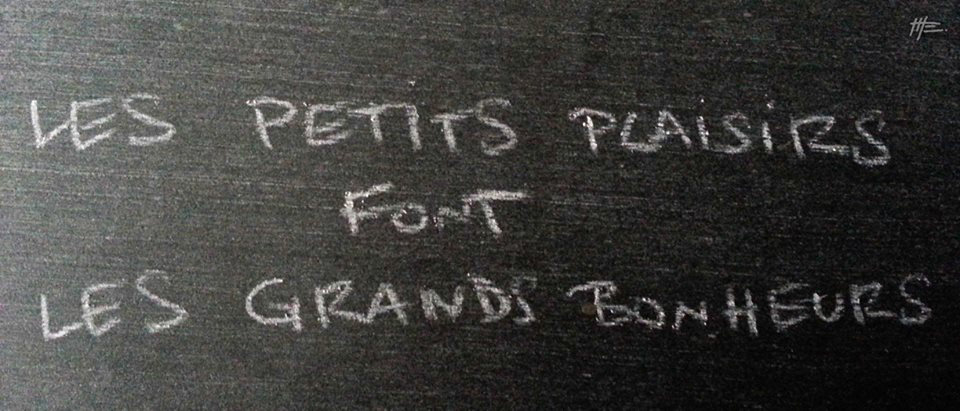 LES PETITS PLAISIRS
FONT
LES GRANDS BONHEURS